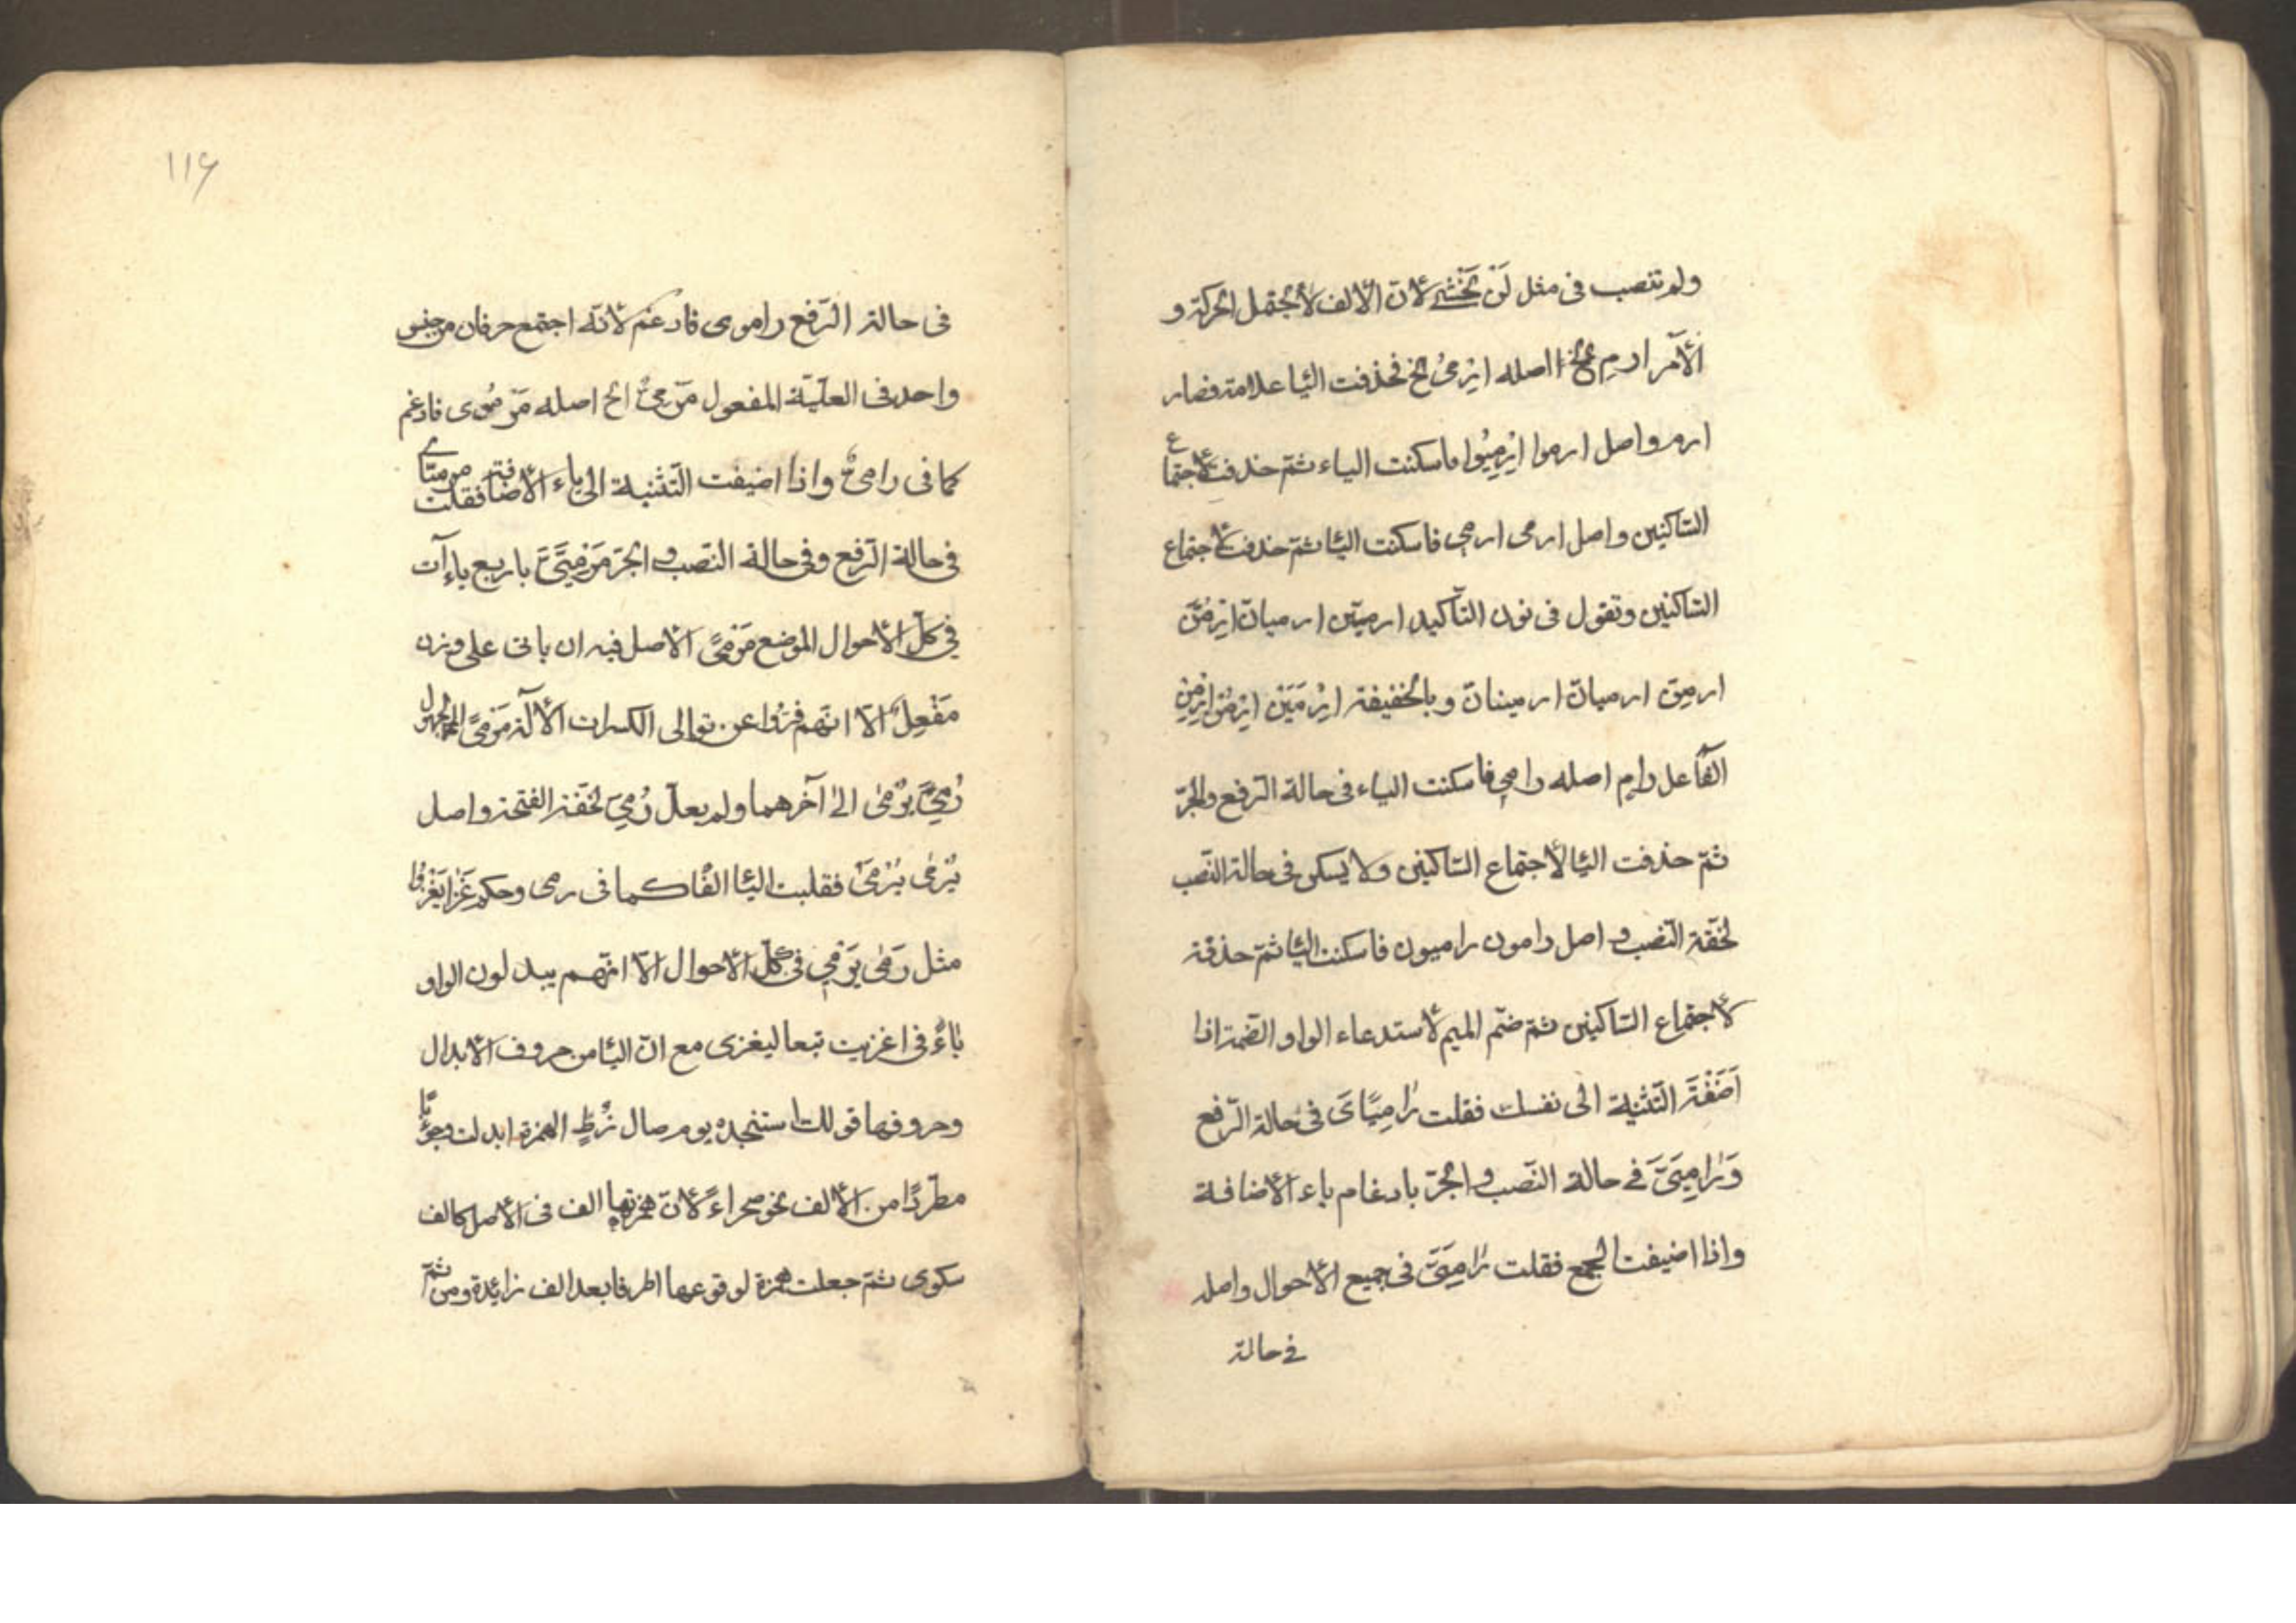 ولم تنصب فى مثل لَنْ تَخْشَى لانّ الالف لا تحتمل الحركة و
الأمر ارم الخ اصله ارْمىُ الخ فحذفت اليا علامة فصار
ارم واصل ارموا ارْمِيُوا فاسكنت الياء ثمّ حذفت لاجتماع
السّاكنين واصل ارمى ارميى فاسكنت اليا ثمّ حذفت لاجتماع
السّاكنين وتقول فى نون التّأكيد ارمينّ ارميانّ ارْمُنَّ
ارمِنّ ارميانّ ارمينانّ وبالخفيفة ارْمَيَنْ ارْمُنْ ارْمِنْ
الفاعل رام اصله رامى فاسكنت الياء فى حالة الرّفع والجرّ
ثمّ حذفت اليا لاجتماع السّاكنين ولا يسكن فى حالة النّصب
لخفّة النّصب و اصل رامون راميون فاسكنت اليا ثمّ حذفت
لاجتماع السّاكنين ثمّ ضمّ الميم لاستدعاء الواو الضّمة اذا
اَضَفْتَ التّثنية الى نفسك فقلت رامِيَاىَ فى حالة الرّفع
وَرامِيَىَّ فى حالة النّصب و الجرّ بادغام ياء الاضافة
واذا اضيفت الجمع فقلت رامِىَّ فى جميع الاحوال واصله
فى حالة
١١۶
فى حالة الرّفع راموى فادغم لانّه اجتمع حرفان من جنس
واحد فى العلّيّة المفعول مَرْمِىٌّ الخ اصله مَرْمُوى فادغم
كما فى رامىّ واذا اضيفت التّثنية الى ياء الاضافة فقلت مرميّاى
فى حالة الرّفع وفى حالة النّصب و الجرّ مَرْمِيَّىَّ باربع ياءآت
فى كلّ الاحوال الموضع مَرْمًى الاصل فيه ان ياتى على وزن
مَفْعِلٌ الّا انّهم فرّوا عن توالى الكسرات الآلة مَرْمًى المجهول
رُمِىَ يُرْمٰى الىٰ آخرهما ولم يعلّ رُمِىَ لخفّة الفتحة واصل
يُرْمٰى يُرْمَىُ فقلبت اليا الفًا كما فى رمى وحكم غَزا يَغْزُوا
مثل رَمٰى يَرْمِى فى كلّ الاحوال الّا انّهم يبدلون الواو
ياءً فى اغزيت تبعا ليغزى مع انّ اليا من حروف الابدال
وحروفها قولك استنجده يوم صال زُطّ الهمزة ابدلت وجوبًا
مطّردًا من الالف نحو صحراءُ لانّ همزتها الف فى الاصل كالف
سكرى ثمّ جعلت همزة لوقوعها اطرفا بعد الف زائدة ومن ثمّ